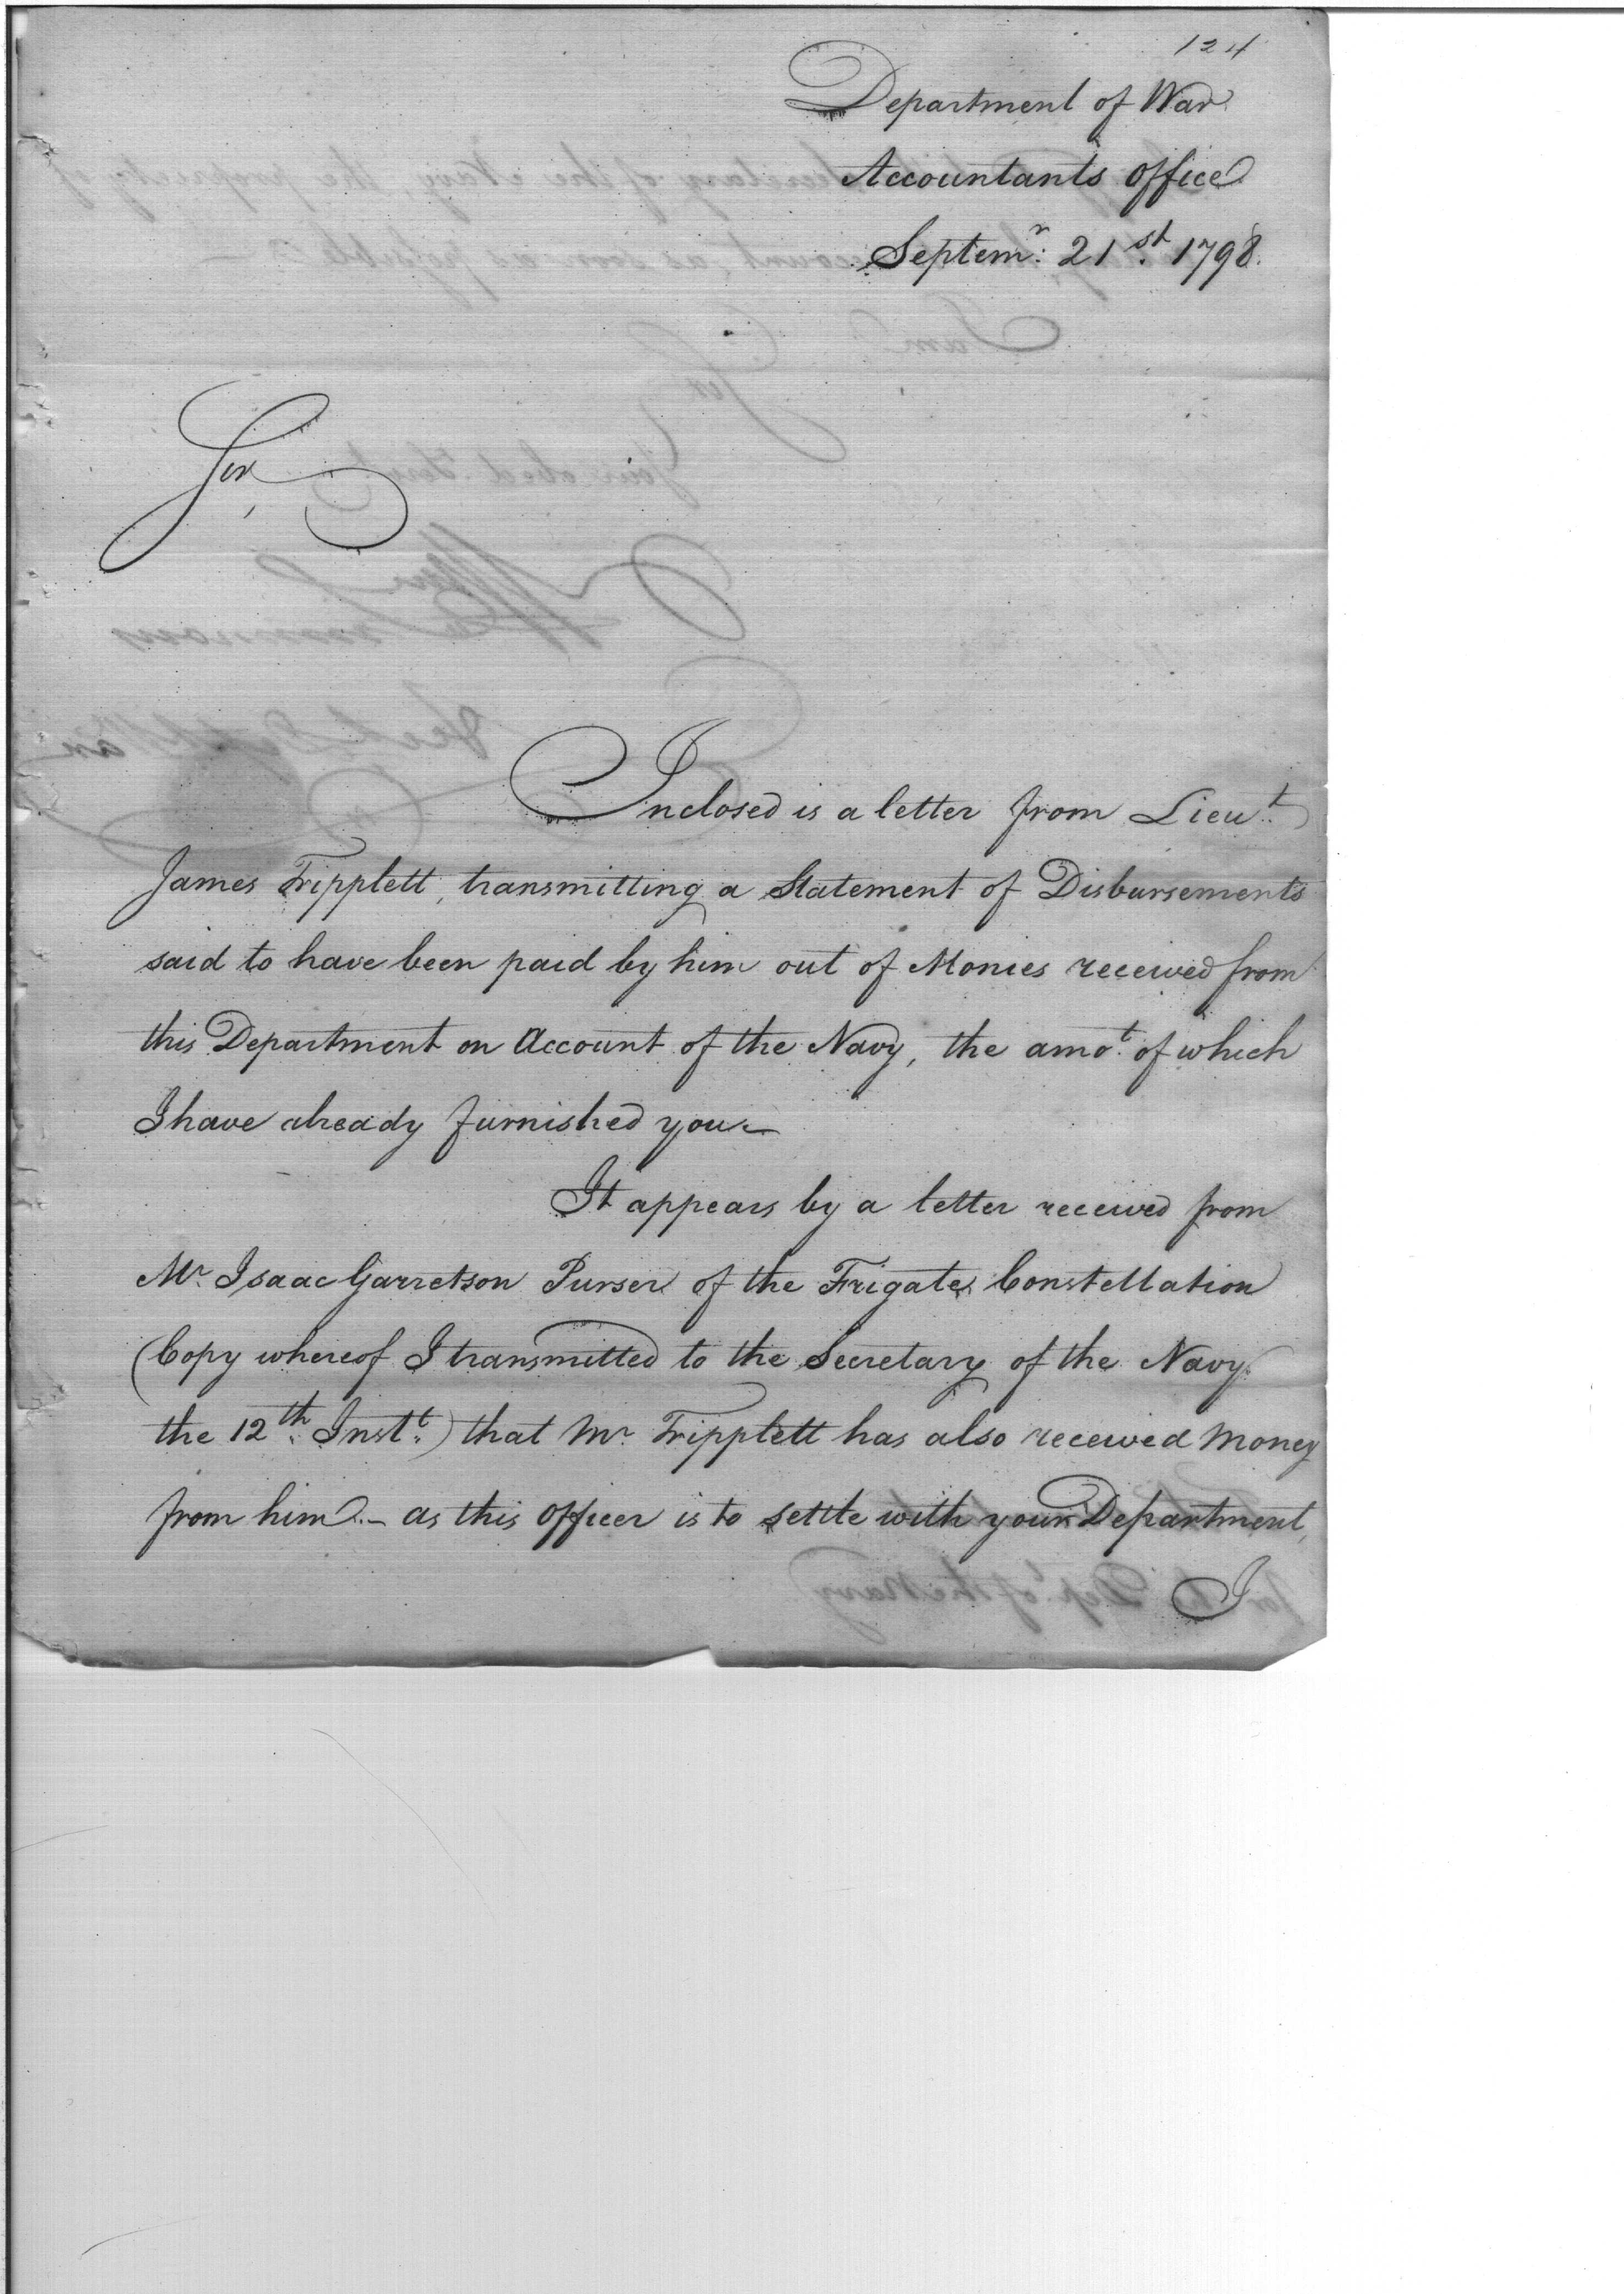 124
Department of War
Accountants Office
Septemr: 21st. 1798.
Sir,
Inclosed is a letter from Lieut.
James Tripplett, transmitting a Statement of Disbursements
said to have been paid by him out of Monies received from
this Department on Account of the Navy, the amot. of which
I have already furnished you—
It appears by a letter received from
Mr. Isaac Garretson Purser of the Frigate Constellation
(Copy whereof I transmitted to the Secretary of the Navy
the 12th. Instt.) that Mr. Tripplett has also received Money
from him.— as this Officer is to settle with your Department,
I